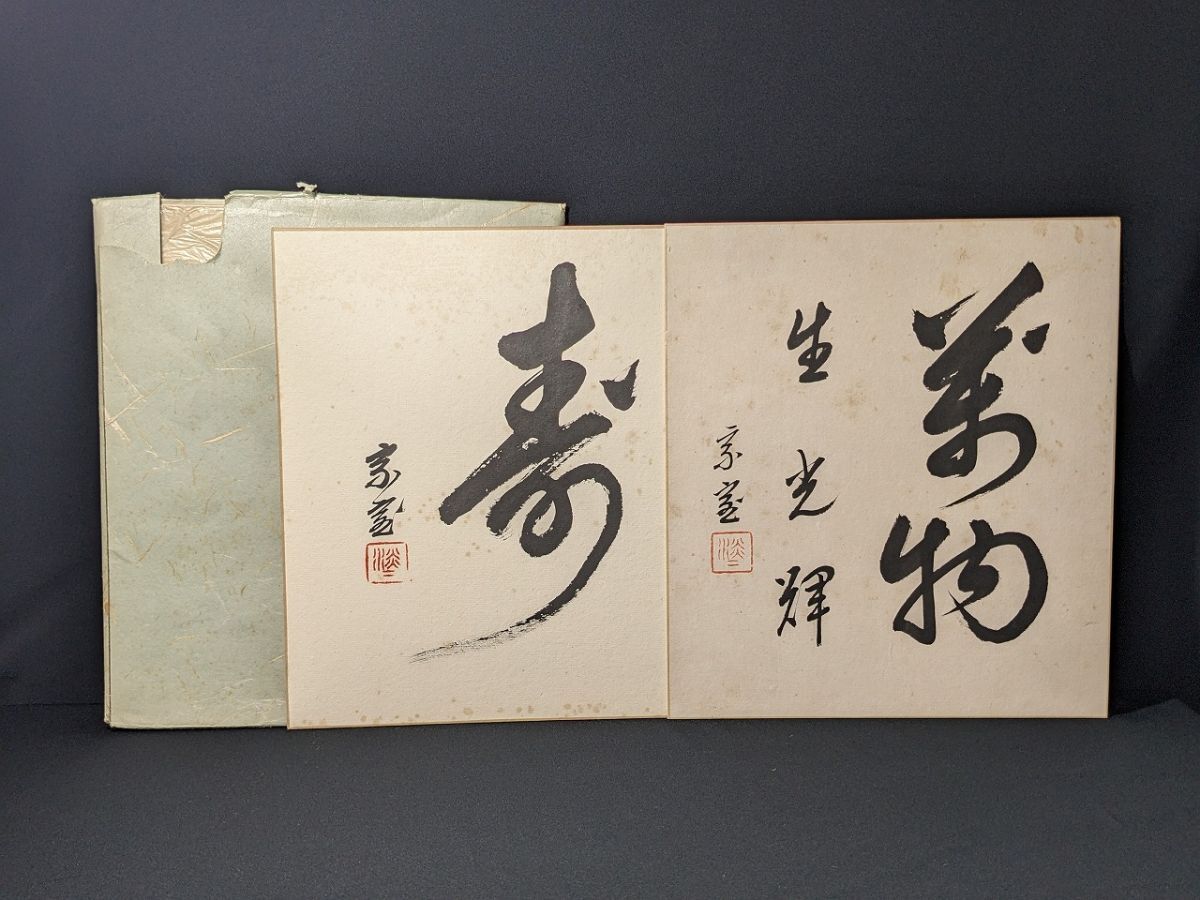 萬物
生光輝
宗室
寿
宗室